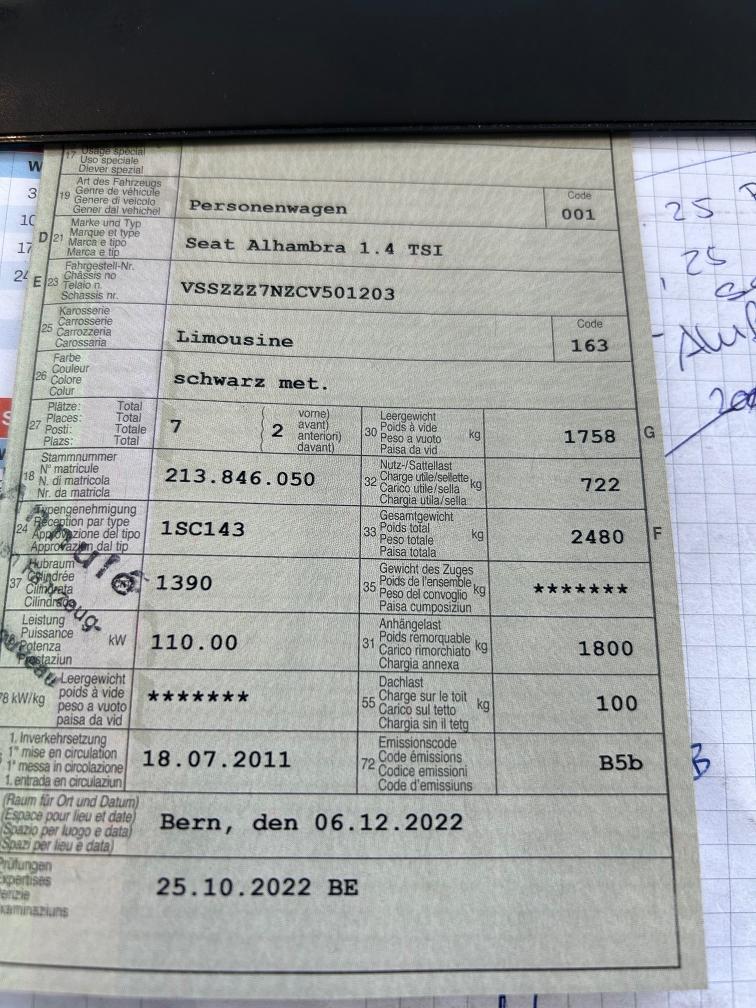 17 Usage spécial
Uso speciale
Diever spezial
19 Art des Fahrzeugs
Genre de véhicule
Genere di veicolo
Gener dal vehichel
Personenwagen
Code
001
D 21 Marke und Typ
Marque et type
Marca e tipo
Marca e tip
Seat Alhambra 1.4 TSI
E 23 Fahrgestell-Nr.
Châssis no
Telaio n.
Schassis nr.
VSSZZZ7NZCV501203
25 Karosserie
Carrosserie
Carrozzeria
Carossaria
Limousine
Code
163
26 Farbe
Couleur
Colore
Colur
schwarz met.
27 Plätze: Total
Places: Total
Posti: Totale
Plazs: Total
7
2
vorne)
avant)
anteriori)
davant)
30 Leergewicht
Poids à vide
Peso a vuoto
Paisa da vid
kg
1758 G
18 Stammnummer
N° matricule
N. di matricola
Nr. da matricla
213.846.050
32 Nutz-/Sattellast
Charge utile/sellette
Carico utile/sella
Chargia utila/sella
kg
722
24 Typengenehmigung
Réception par type
Approvazione del tipo
Approvaziun dal tip
1SC143
33 Gesamtgewicht
Poids total
Peso totale
Paisa totala
kg
2480 F
37 Hubraum
Cylindrée
Cilindrata
Cilindrada
1390
35 Gewicht des Zuges
Poids de l'ensemble
Peso del convoglio
Paisa cumposiziun
kg
*******
Leistung
Puissance
Potenza
Prestaziun
kW
110.00
31 Anhängelast
Poids remorquable
Carico rimorchiato
Chargia annexa
kg
1800
78 kW/kg
Leergewicht
poids à vide
peso a vuoto
paisa da vid
*******
55 Dachlast
Charge sur le toit
Carico sul tetto
Chargia sin il tetg
kg
100
1. Inverkehrsetzung
1re mise en circulation
1a messa in circolazione
1. entrada en circulaziun
18.07.2011
72 Emissionscode
Code émissions
Codice emissioni
Code d'emissiuns
B5b
(Raum für Ort und Datum)
(Espace pour lieu et date)
(Spazio per luogo e data)
(Spazi per lieu e data)
Bern, den 06.12.2022
Prüfungen
Expertises
25.10.2022 BE
25
25
B